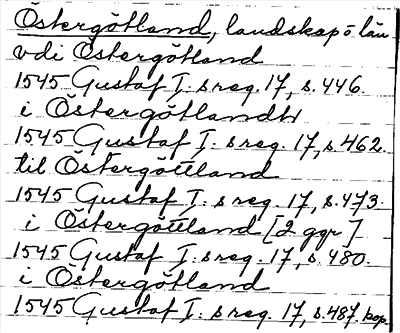 Östergötland, landskap o. län
vdi Östergötland
1545 Gustaf I:s reg. 17, s. 446.
i Östergötlandh
1545 Gustaf I:s reg. 17, s. 462.
til Östergöttland
1545 Gustaf I:s reg. 17, s. 473.
i Östergöttland [2 ggr]
1545 Gustaf I:s reg. 17, s. 480.
i Östergötland
1545 Gustaf I:s reg. 17, s. 487. kop.